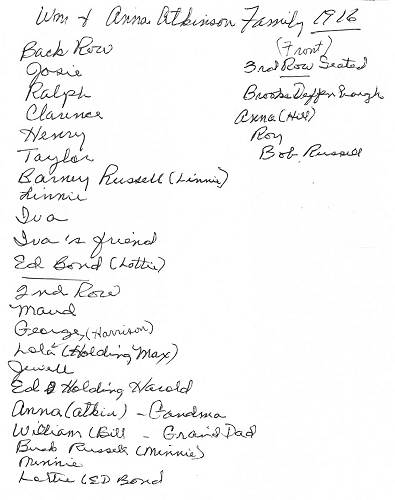 Wm & Anna Atkinson Family 1916
Back Row
Josie
Ralph
Clarence
Henry
Taylor
Barney Russell (Linnie)
Linnie
Iva
Iva's friend
Ed Bond (Lottie)
2nd Row
Maud
George, (Harrison)
Lola (Holding Max)
Jewell
Ed Holding Harold
Anna (Atkin) - Grandma
William (Bill - Grand Dad
Bush Russell (Minnie)
Minnie
Lottie (ED Bond
(Front)
3rd Row Seated
Brooks
Anna (Hill)
Roy
Bob Russell